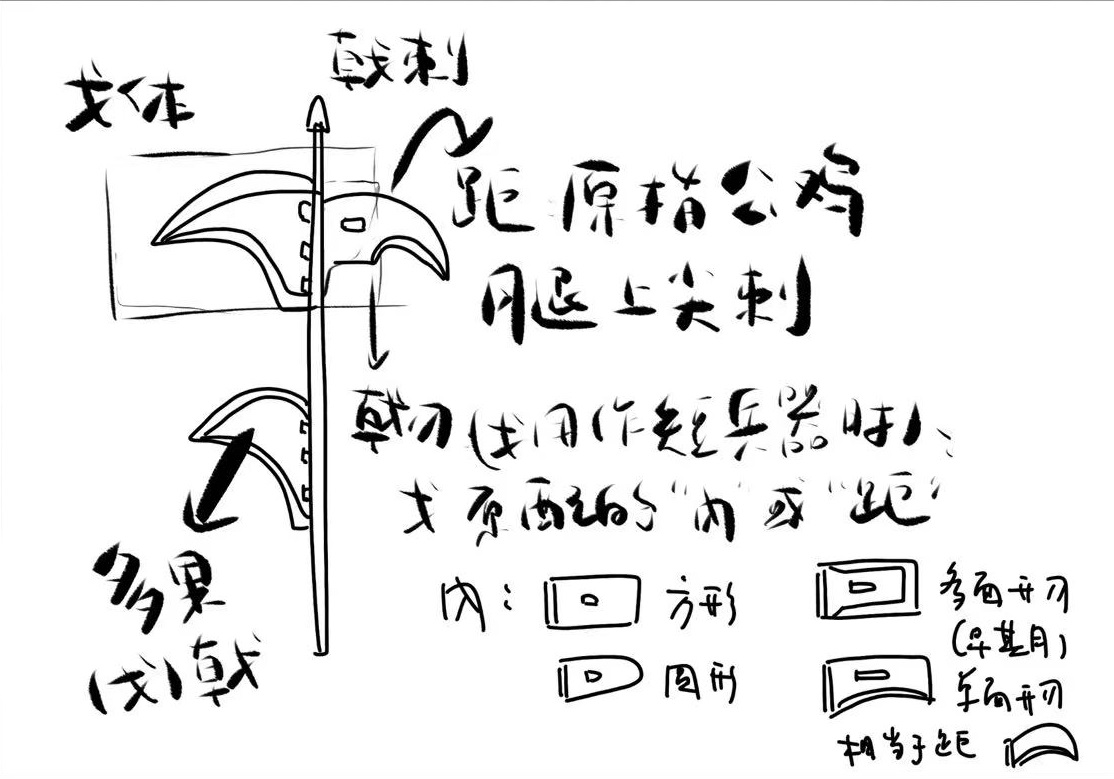 戟刺
戈体
距原指公鸡
腿上尖刺
戟刃(戈用作短兵器时)、
戈原配的"内"或"距"
多果
(戈)戟
内:
方形
圆形
多面开刃
(早期)
单面开刃
相当于距